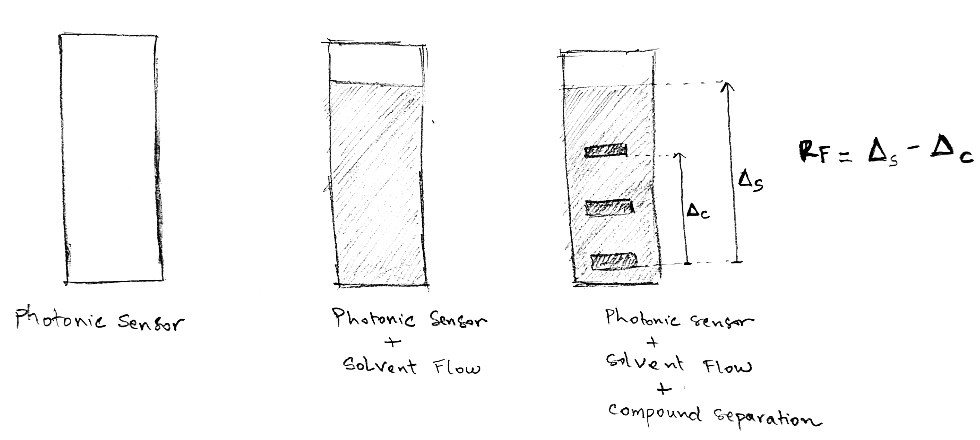 Photonic Sensor
Photonic Sensor
+
Solvent Flow
Photonic sensor
+
Solvent Flow
+
Compound separation
Δc
Δs
RF = Δs - Δc